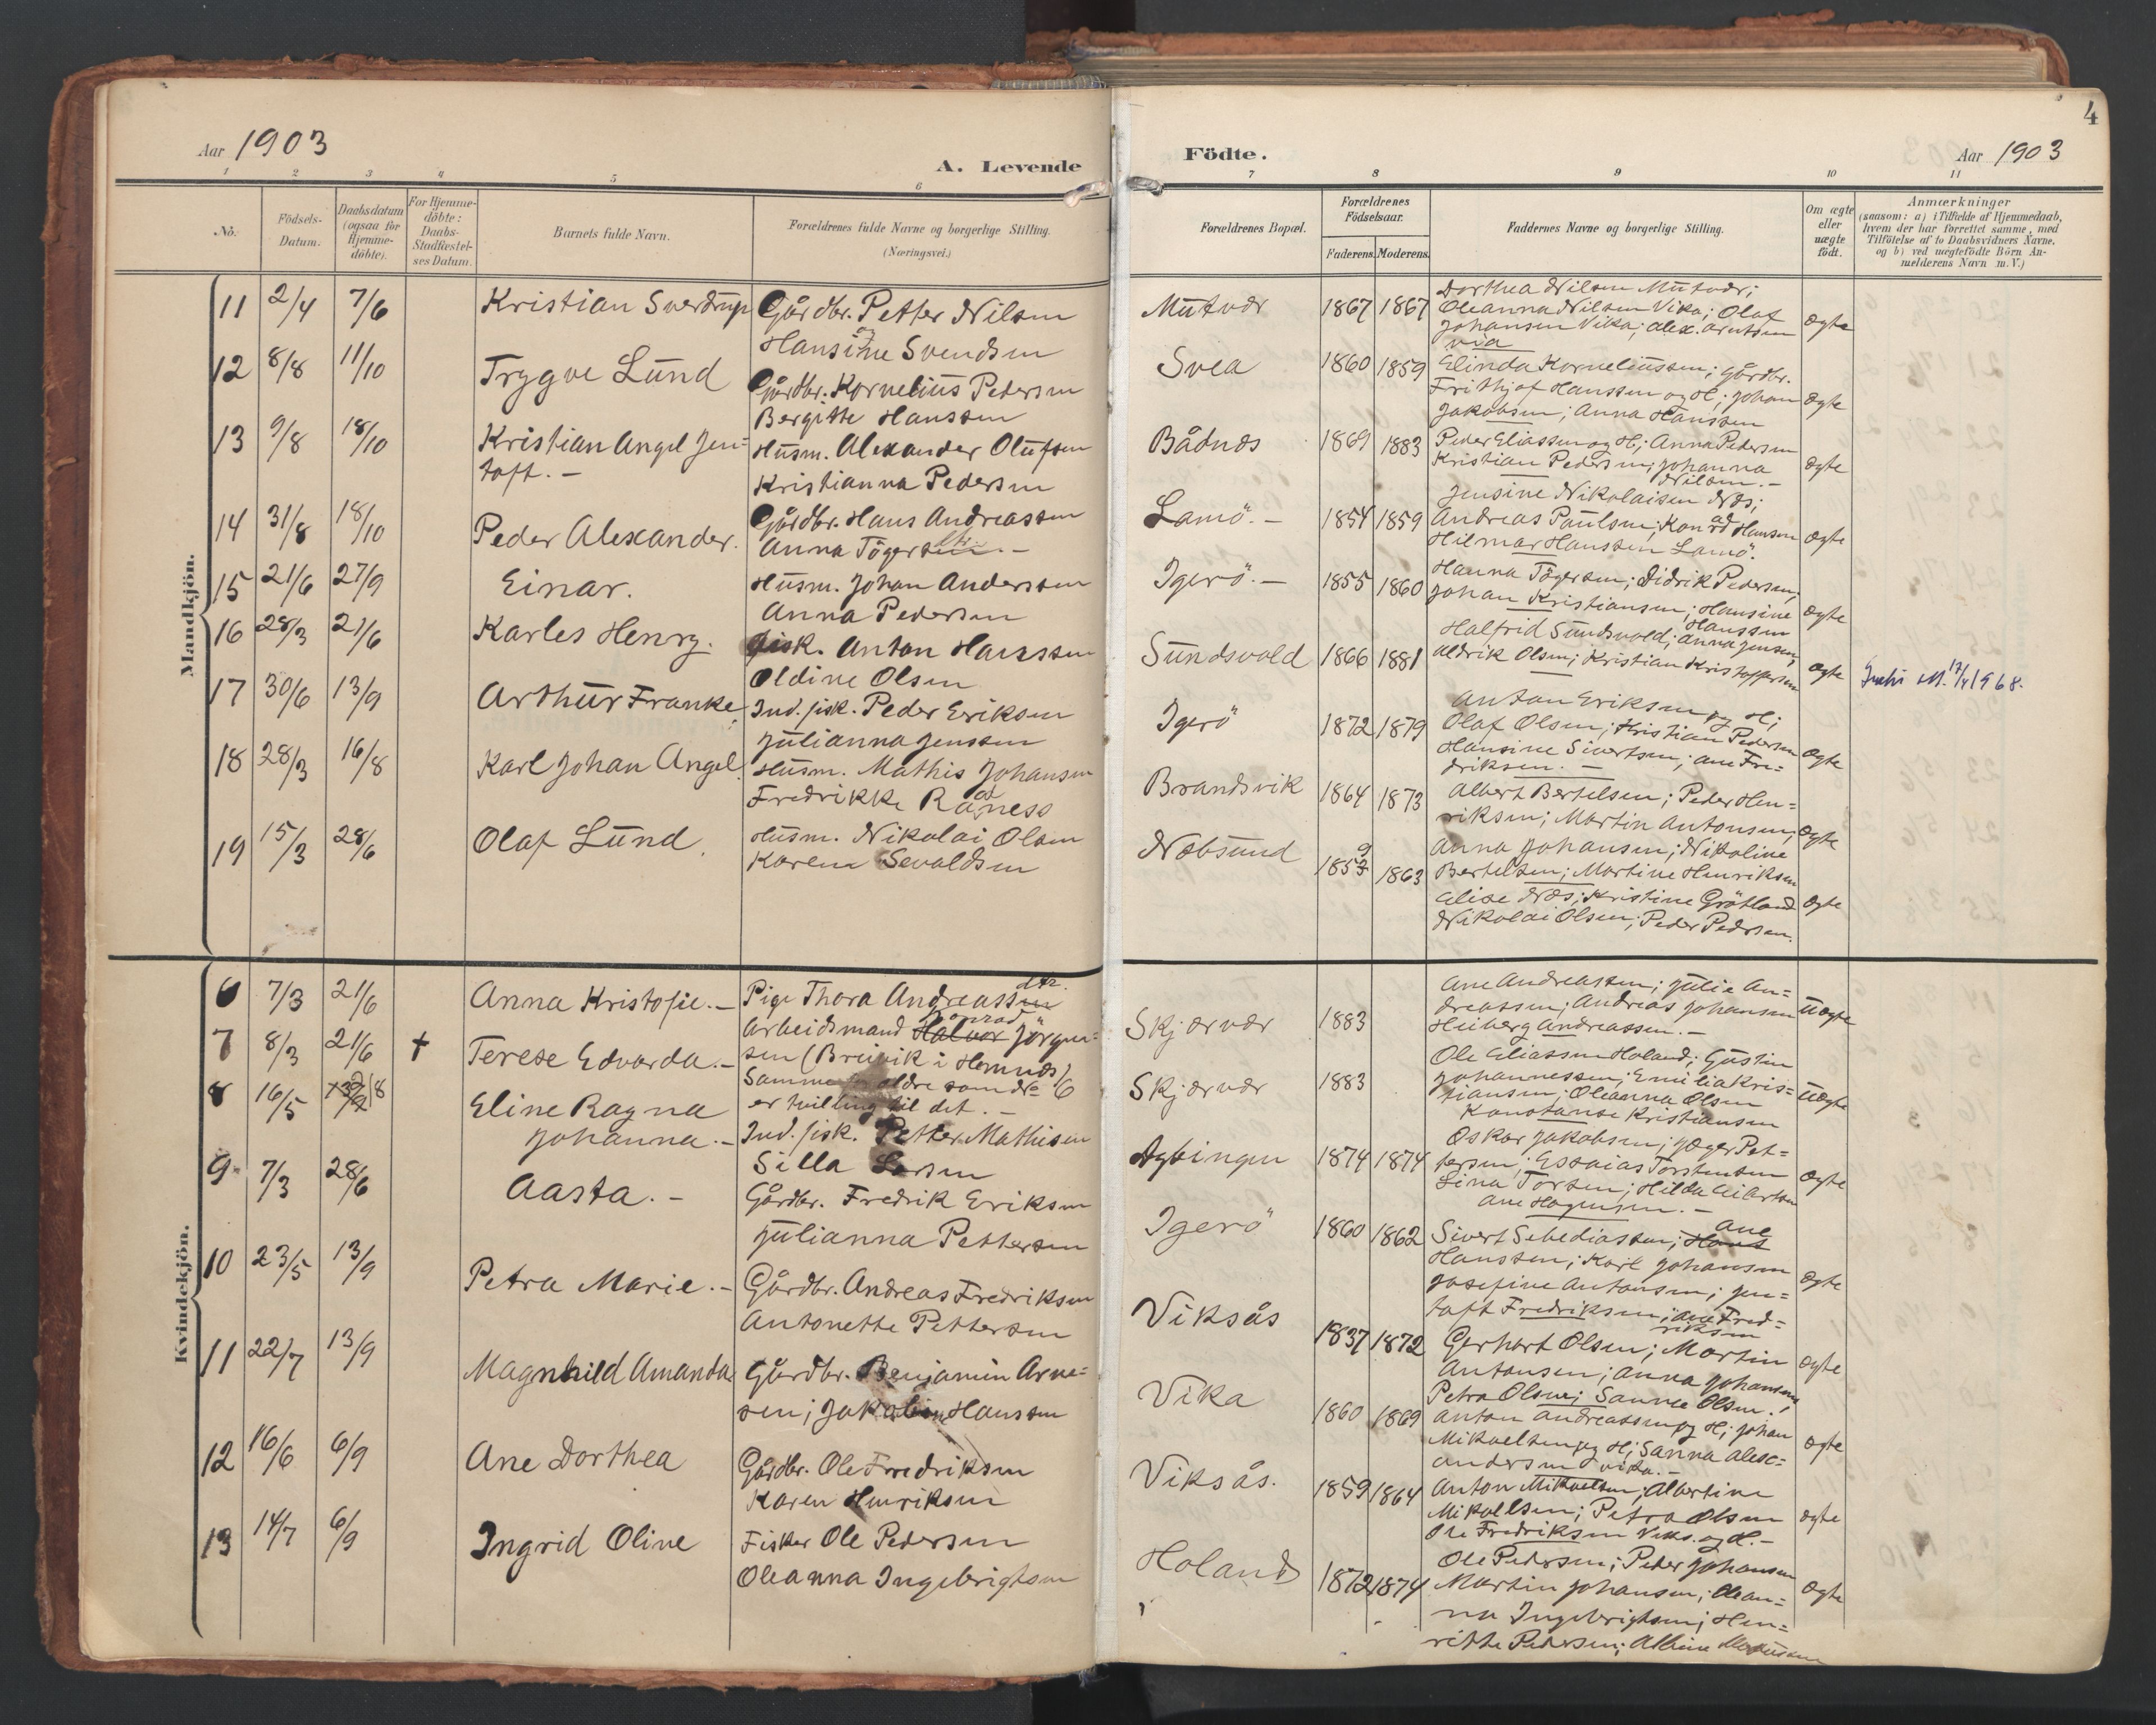 Aar 1903
A. Levende
1 2 3 4 5 6
No.
Födsels-Datum.
Daabsdatum (ogsaa for Hjemme-döbte).
For Hjemme-döbte: Daabs-Stadfæstel-ses Datum.
Barnets fulde Navn.
Forældrenes fulde Navne og borgerlige Stilling.
(Næringsvei.)
Mandkjön.
11 2/4 7/6 Kristian Sverdrup Gårdbr. Petter Nilsen
og
Hansine Svendsen
12 8/8 11/10 Trygve Lund Gårdbr. Kornelius Pedersen
Bergitte Hanssen
13 9/8 18/10 Kristian Angel Jen= Husm. Alexander Olufsen
toft. - Kristianna Pedersen
14 31/8 18/10 Peder Alexander. Gårdbr. Hans Andreassen
Anna Tögersen
15 21/6 27/9 Einar. Husm. Johan Anderssen
Anna Pedersen
16 28/3 21/6 Karles Henry. Fisk. Anton Hanssen
Oldine Olsen
17 30/6 13/9 Arthur Franke. Ind. fisk. Peder Eriksen
Julianna Jenssen
18 28/3 16/8 Karl Johan Angel. Husm. Mathis Johansen
Fredrikke Råness
19 15/3 28/6 Olaf Lund. Husm. Nikolai Olsen
Karen Sevaldsen
Kvindekjön.
6 7/3 21/6 Anna Kristofie. - Pige Thora Andreassen dtr.
Arbeidsmand Halvor Konrad Jörgen=
7 8/3 21/6 + Terese Edvarda. - sen (Breivik i Hemnes)
Samme forældre som No 6
er tvilling til det. -
8 16/5 Eline Ragna Johanna. - Ind. fisk. Petter Mathisen
Silla Larsen
9 7/3 28/6 Aasta. - Gårdbr. Fredrik Eriksen
Julianna Pettersen
10 23/5 13/9 Petra Marie. - Gårdbr. Andreas Fredriksen
Antonette Pettersen
11 22/7 13/9 Magnhild Amanda Gårdbr. Benjamin Arne=
sen; Jakobine Hanssen
12 16/6 6/9 Ane Dorthea Gårdbr. Ole Fredriksen
Karen Henriksen
13 14/7 6/9 Ingrid Oline Fisker Ole Pedersen
Oleanna Ingebrigtsen
4
Födte.
Aar 1903
7 8 9 10 11
Forældrenes Bopæl.
Forældrenes Födselsaar.
Faderens. Moderens.
Faddernes Navne og borgerlige Stilling.
Om ægte eller uægte födt.
Anmærkninger
(saasom: a) i Tilfælde af Hjemmedaab,
hvem der har forrettet samme, med
Tilföielse af to Daabsvidners Navne,
og b) ved uægtefödte Börn An-
melderens Navn m. V.)
Dorthea Nilsen Mutvær;
Mutvær 1867 1867 Oleanna Nilsen Vika; Olaf
Johansen Vika; Alex. Arntsen ægte
Vika
Svea 1860 1859 Elinda Korneliussen; Gårdbr.
Frithjof Hanssen og H; Johan ægte
Jakobsen; Anna Hanssen
Båtnæs 1869 1883 Peder Eliassen og H; Anna Pedersen
Kristian Pedersen; Johanna ægte
Nilsen. -
Jensine Nikolaisen Næs;
Lamö. - 1854 1859 Andreas Paulsen; Konrad Hansen
Hilmar Hanssen Lamö. ægte
Hanna Tögersen; Didrik Pedersen;
Igerö. - 1855 1860 Johan Kristiansen; Hansine ægte
Hanssen
Halfrid Sundsvold; Anna Jensen;
Sundsvold 1866 1881 Aldrik Olsen; Kristian Kristoffersen ægte 17/4 1968.
Anton Eriksen og H;
Igerö 1872 1879 Olaf Olsen; Kristian Pedersen
Hansine Sivertsen; Ane Fre= ægte
driksen. -
Brandsvik 1864 1873 Albert Bertelsen; Peder Hen=
riksen; Martin Antonsen; ægte
Anna Johansen; Nikoline
Næbsund 1859 1863 Bertelsen; Martine Henriksen
Elise Næs; Kristine Grötland ægte
Nikolai Olsen; Peder Pedersen.
Ane Andreassen; Julie An=
Skjærvær 1883 dreassen; Andreas Johansen uægte
Heiberg Andreassen. -
Ole Eliassen Holand; Gustin
Skjærvær 1883 Johannessen; Emilia Kris=
tiansen; Oleanna Olsen uægte
Konstanse Kristiansen
Oskar Jakobsen; Jæger Pet=
1874 1874 tersen; Essaias Torstensen ægte
Lina Torsen; Hilda Eilertsen
Ane Hagensen. -
Igerö 1860 1862 Sivert Sebediassen; Hans Ane
Hanssen; Karl Johansen
Josefine Antonsen; Jen= ægte
toft Fredriksen; Ane Fred=
riksen
Viksås 1837 1872 Gerhart Olsen; Martin
Antonsen; Anna Johansen ægte
Petra Olsen; Sanna Olsen.
Vika 1860 1869 Anton Andreassen og H; Johan
Mikaelsen og H; Sanna Alex= ægte
andersen Vika. -
Viksås. 1859 1864 Anton Mikaelsen; Albertine
Mikaelsen; Petra Olsen ægte
Ole Fredriksen Viks. og H. -
Ole Pedersen; Peder Johansen
Holand 1872 1874 Martin Johansen; Olean= ægte
na Ingebrigtsen; Hen=
ritte Pedersen; Albine